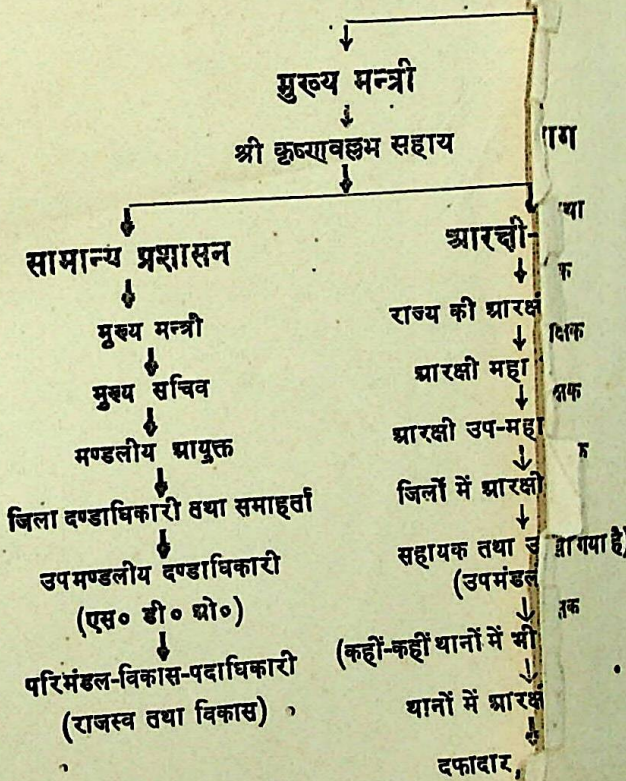 मुख्य मन्त्री
श्री कृष्णवल्लभ सहाय
सामान्य प्रशासन
मुख्य मन्त्री
मुख्य सचिव
मण्डलीय आयुक्त
जिला दण्डाधिकारी तथा समाहर्ता
उपमण्डलीय दण्डाधिकारी
(एस० डी० ओ०)
परिमंडल-विकास-पदाधिकारी
(राजस्व तथा विकास)
आरक्षी-
राज्य की
आरक्षी महा
आरक्षी उप-महा
जिलों में आरक्षी
सहायक तथा
(उपमंडल
(कहीं-कहीं थानों में भी
थानों में
दफादार,
गया है)